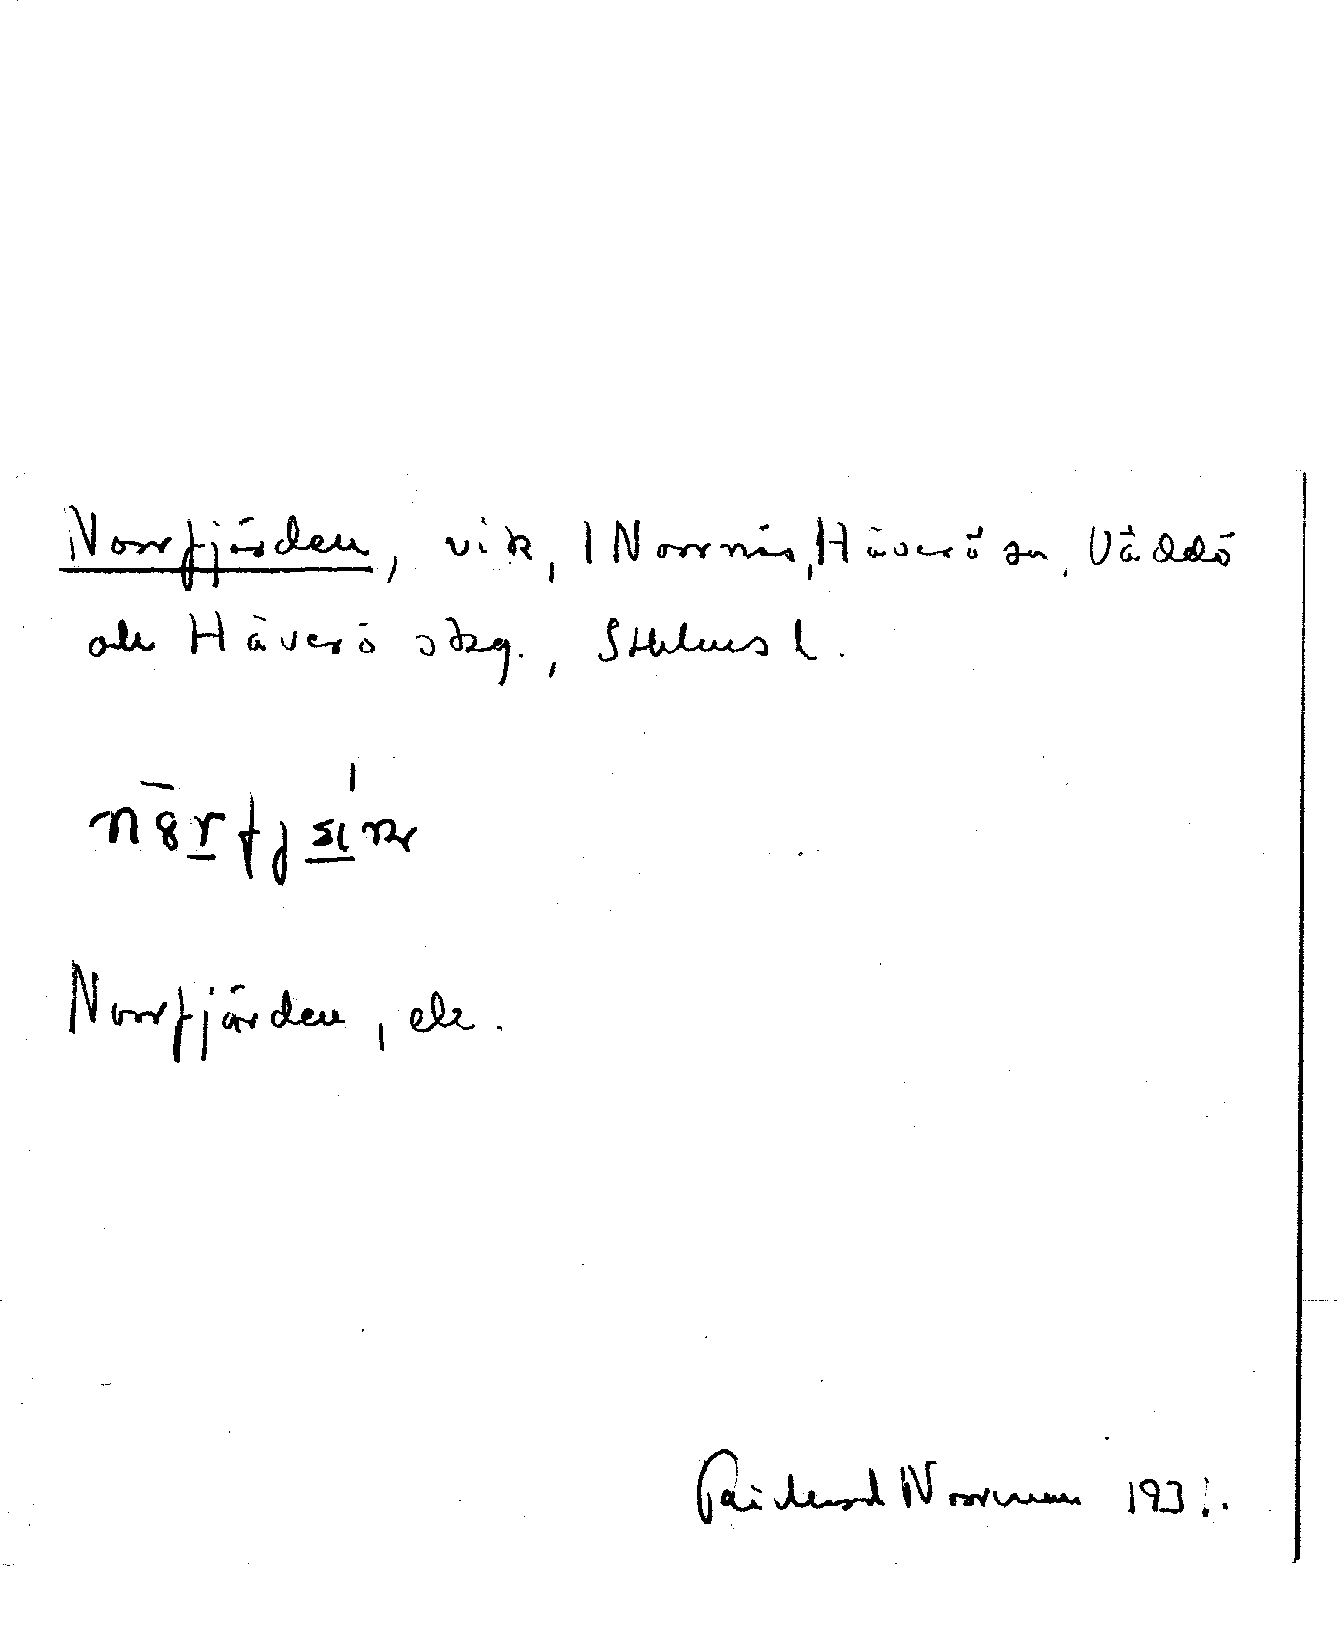 Norrfjärden, vik, 1 Norrnäs, Häverö sn, Väddö
och Häverö skg., Sthlms l.
Norrfjärden, ek.
Norrman 193